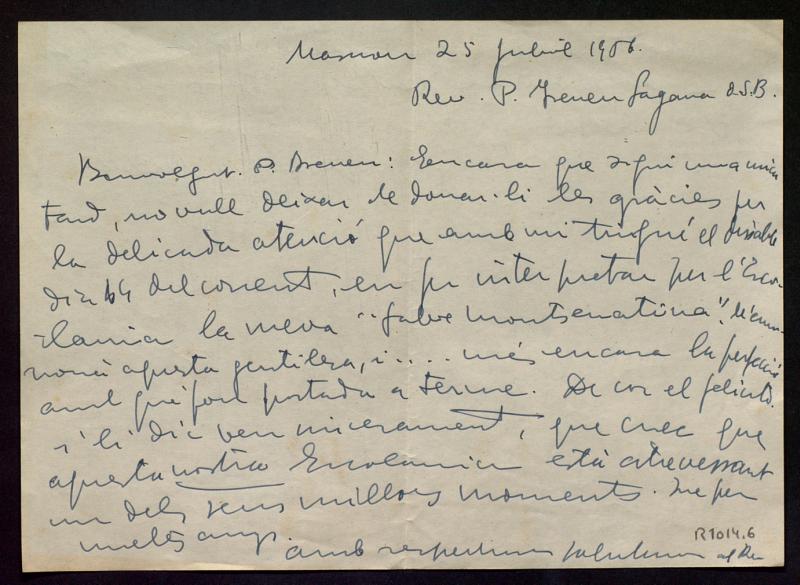 Masnou 25 Juliol 1956.
Rev. P. Ireneu Segarra O.S.B.
Benvolgut P. Ireneu: Encara que sigui una mica
tard, no vull deixar de donar-li les gràcies per
la delicada atenció que amb mi tingué el dissabte
dia 14 del corrent, en fer interpretar per l'Esco-
lania la meva "Salve Montserratina".
aquesta gentilesa, i .... més encara la perfecció
amb què fou portada a terme. De cor el felicito.
i li dic ben sincerament, que crec que
aquesta nostra Escolania està atravessant
un dels seus millors moments. Que per
molts anys.
amb respectuosa salutació al Rev
R 1014.6